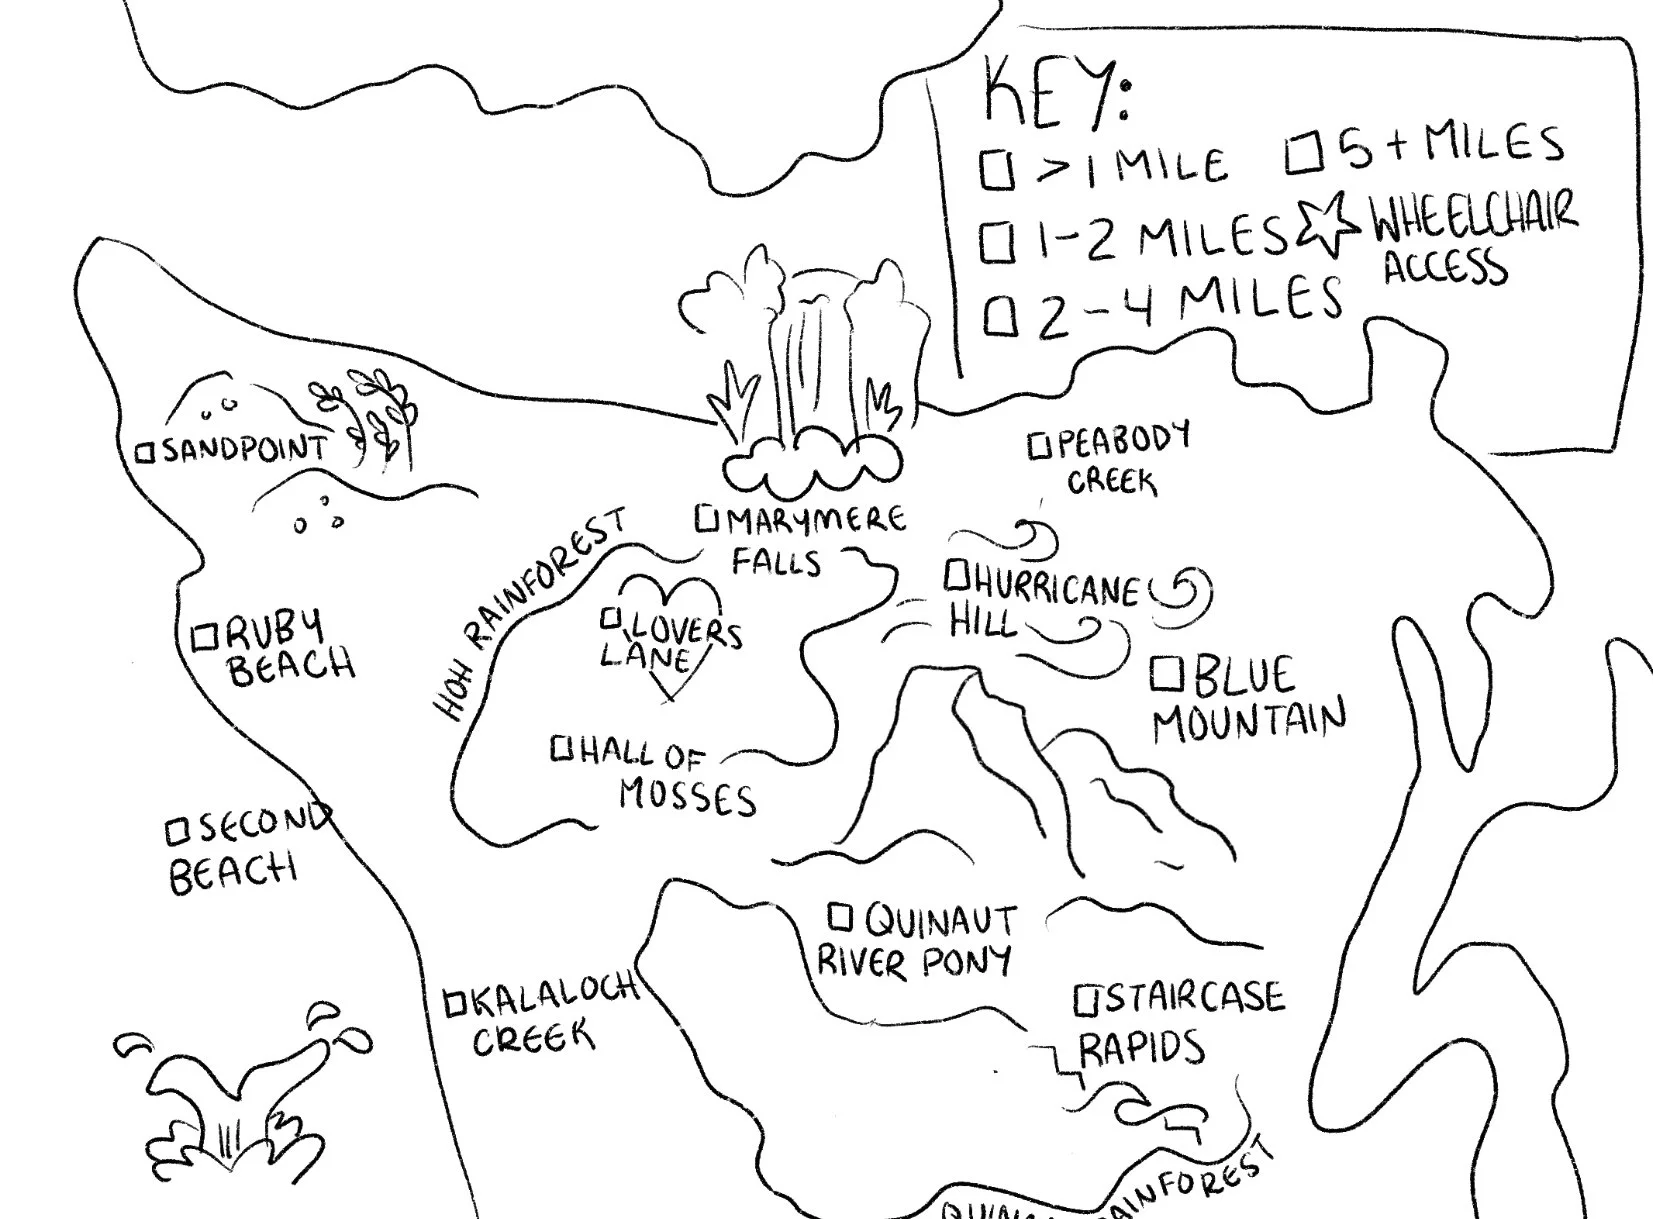 KEY:
>1 MILE
1-2 MILES
2-4 MILES
5+ MILES
WHEELCHAIR
ACCESS
SANDPOINT
PEABODY
CREEK
MARYMERE
FALLS
HOH RAINFOREST
HURRICANE
HILL
LOVERS
LANE
RUBY
BEACH
BLUE
MOUNTAIN
HALL OF
MOSSES
SECOND
BEACH
QUINAUT
RIVER PONY
KALALOCH
CREEK
STAIRCASE
RAPIDS